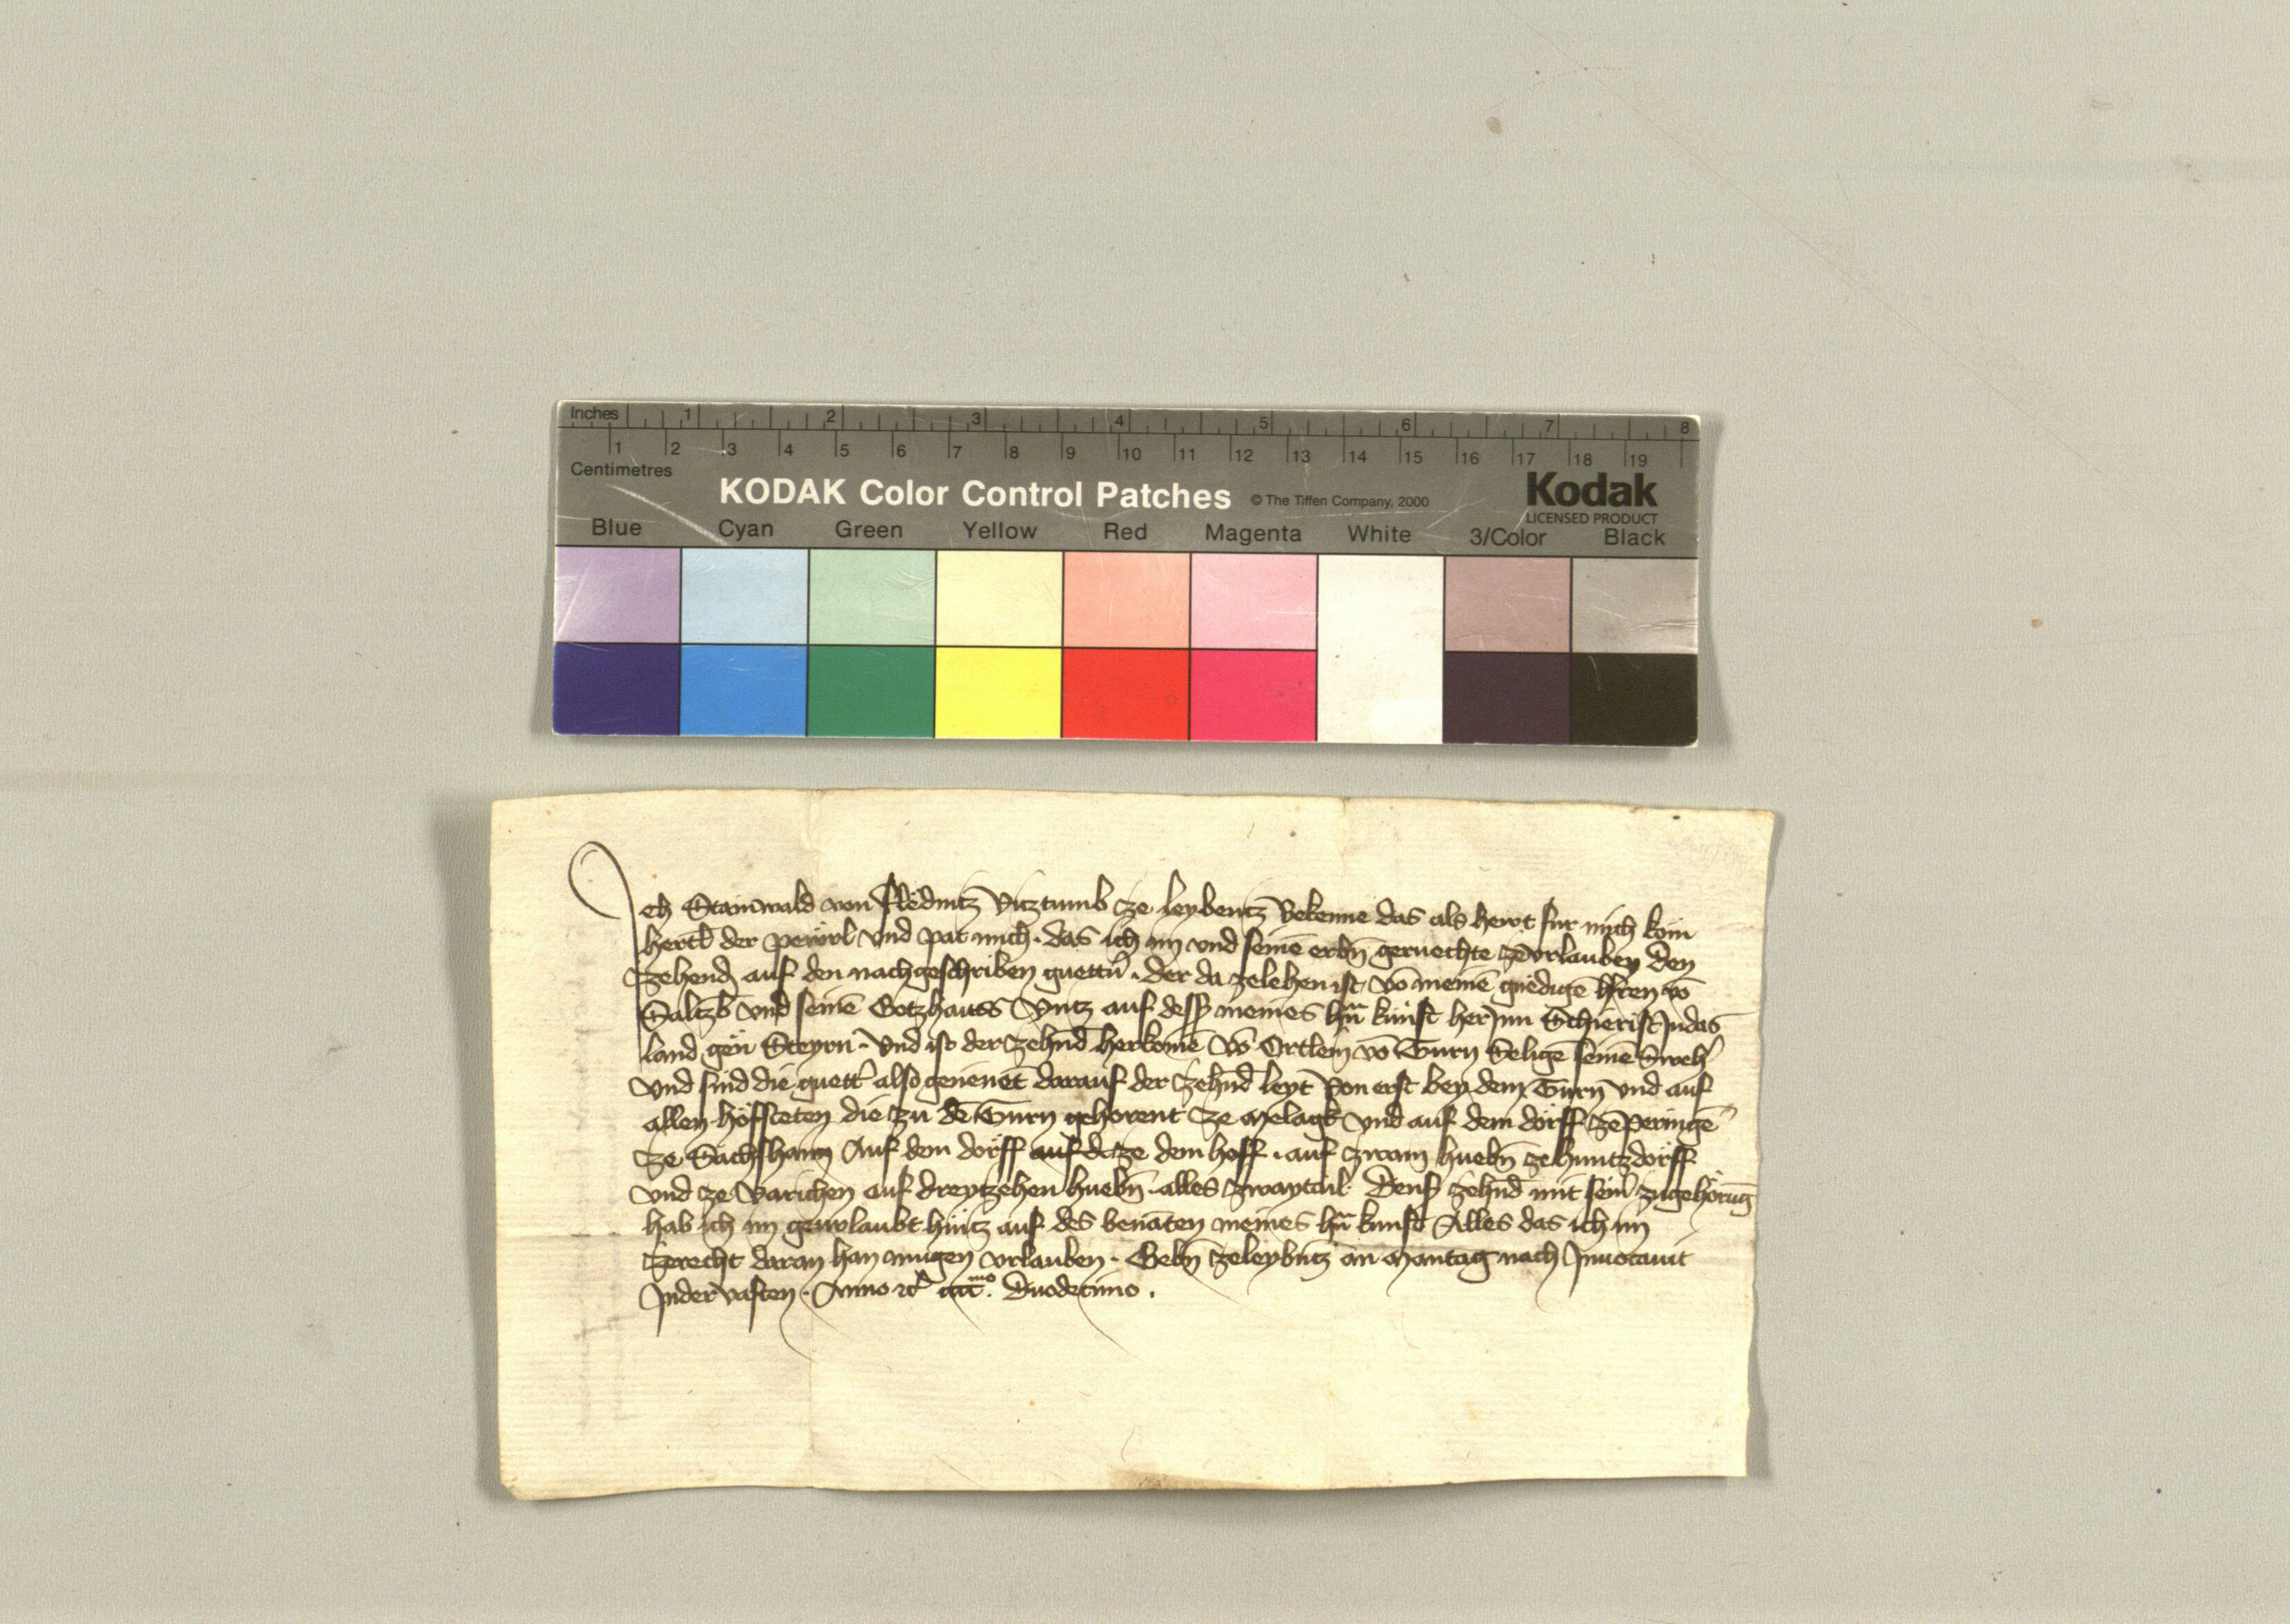 Inches 1 2 3 4 5 6 7 8
1 2 3 4 5 6 7 8 9 10 11 12 13 14 15 16 17 18 19
Centimetres
KODAK Color Control Patches © The Tiffen Company, 2000 Kodak
LICENSED PRODUCT
Blue Cyan Green Yellow Red Magenta White 3/Color Black
Ich Stainwald von Flëdnitz Vitztumb ze leybentz Bekenne das als hewt fur mich kom
hertl der perürl vnd pat mich. das ich im vnd seinē erbn̄ geruechte zevrlauben den
zehend auf den nachgeschriben guettn̄. der da zelehen ist vō meinē gnedigē hren vō
Saltzb vnd seinē Gotzhauss Vntz auf dess meines hn̄ kunft herInn Schierist Indas
land gen Steyrn. Vnd ist der zehnd herkomē vō Ortlein vō Turn Seligē seinē Sweh
Vnd sind die guett also genenet darauf der zehnd leyt Von erst bey dem Turn vnd auf
allen höffsteten die zu dē Turn gehorent ze Melagk vnd auf dem dorff ze peringē
ze Sachshann Auf dem dörff auf daze dem hoff. auf zwain huebn̄ ze huntzdorff
vnd ze Varichen auf dreytzehen huebn̄. alles zwaytail Denſ zehnd mit seiñ zugehörug̃
hab ich im geurlaubt hintz auf des benāten meines hn̄ kunft Alles das ich im
zerecht daran han mugen vrlauben. Gebn̄ zeleybntz an Mantag nach Inuocauit
Inder vasten. Anno etc̄ Duodecimo.